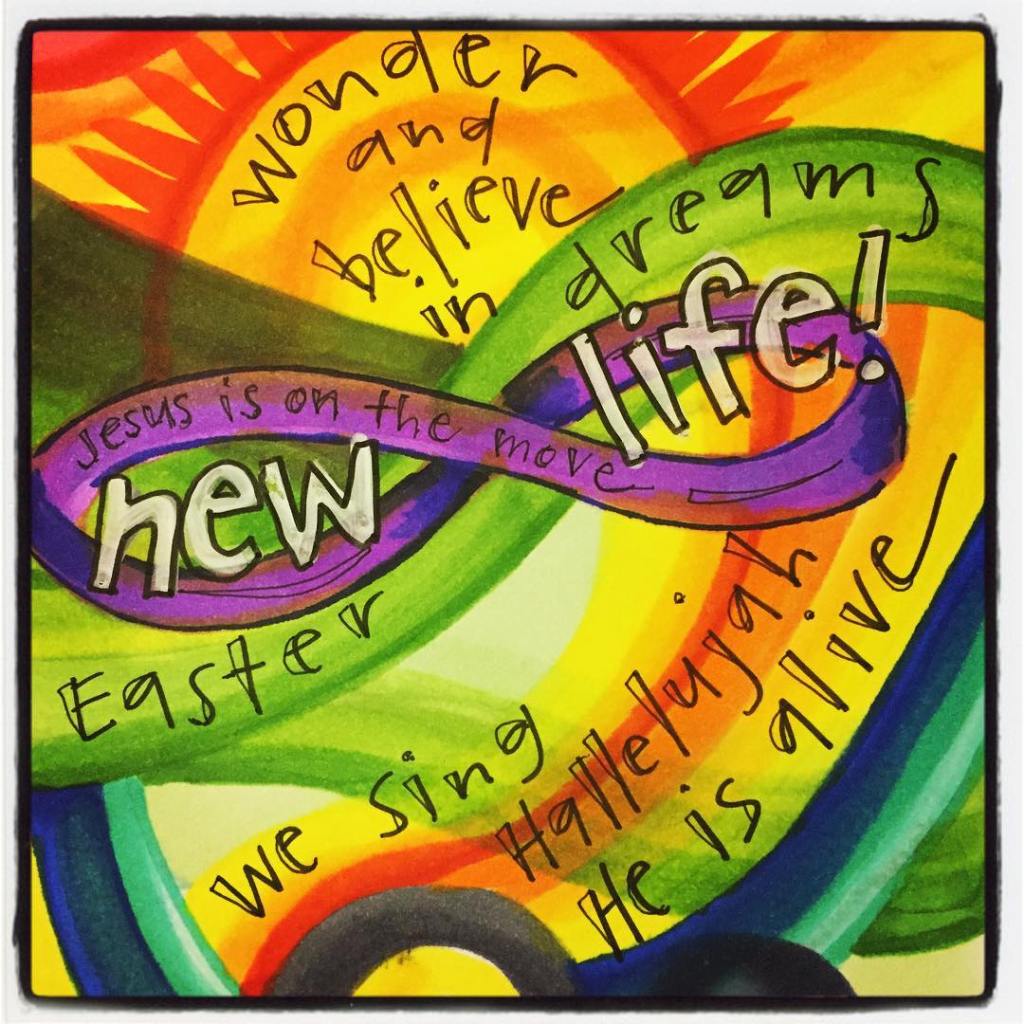 wonder
and
believe
in dreams
Jesus is on the move
new life!
Easter
we sing
Hallelujah
He is alive